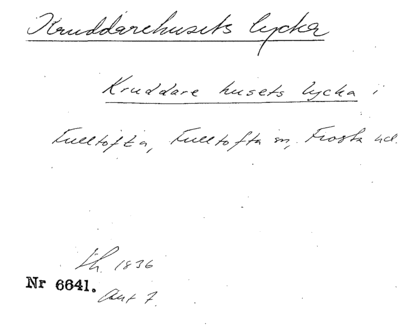 Kruddarehusets lycka
Kruddare husets lycka i
Fulltofta, Fulltofta sn, Frosta hd.
Lh. 1836
Nr 6641.
Akt 7.